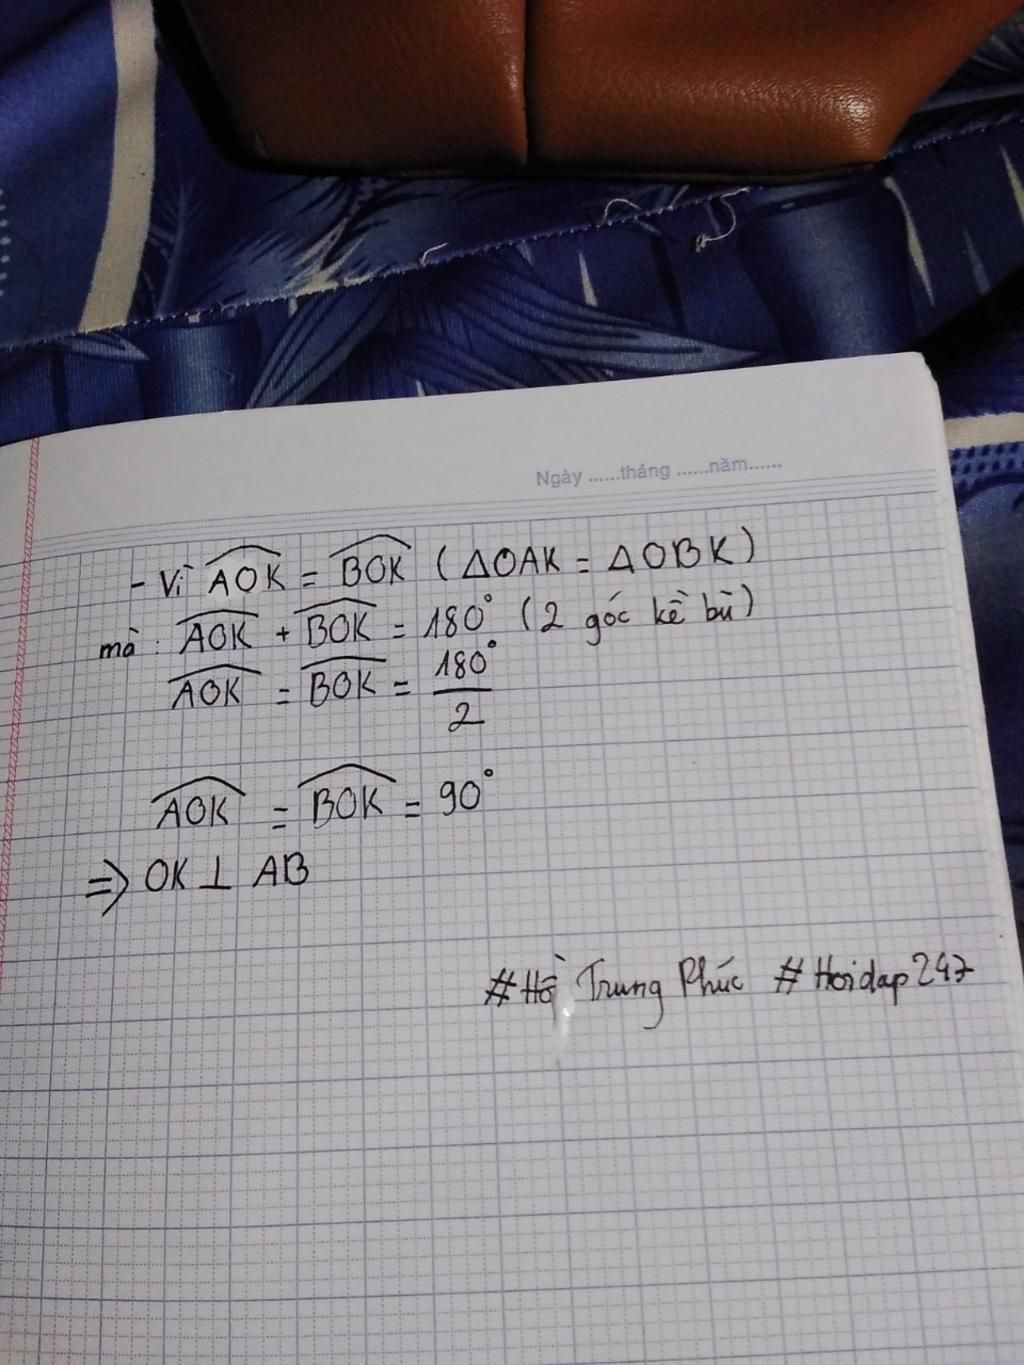 Ngày ......tháng ......năm......
- Vì $\widehat{AOK} = \widehat{BOK}$ (ΔOAK = ΔOBK)
mà : $\widehat{AOK} + \widehat{BOK} = 180°$ (2 góc kề bù)
$\widehat{AOK} = \widehat{BOK} = \frac{180°}{2}$
$\widehat{AOK} = \widehat{BOK} = 90°$
=> OK ⊥ AB
#Hồ Trung Phúc #Hoidap247